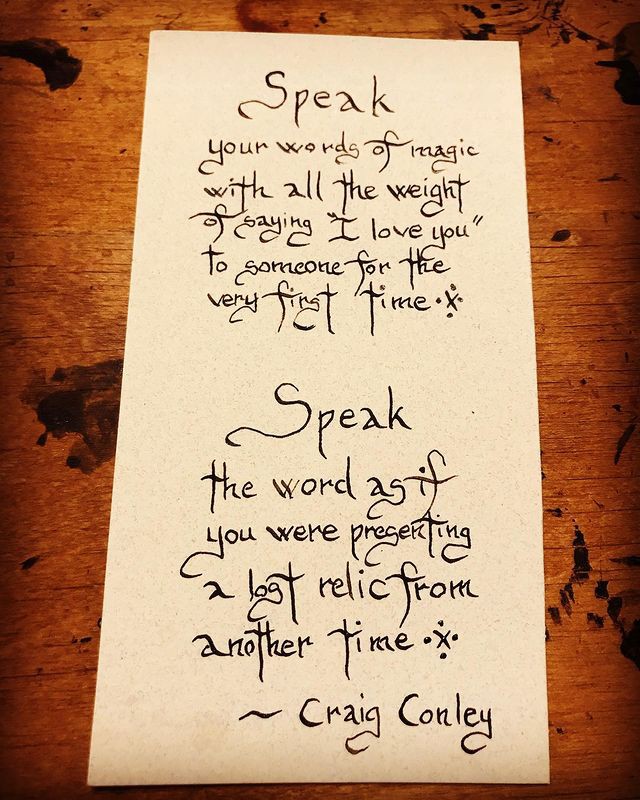 Speak
your words of magic
with all the weight
of saying "I love you"
to someone for the
very first time ·ẋ·
Speak
the word as if
you were presenting
a lost relic from
another time ·ẋ·
~ Craig Conley